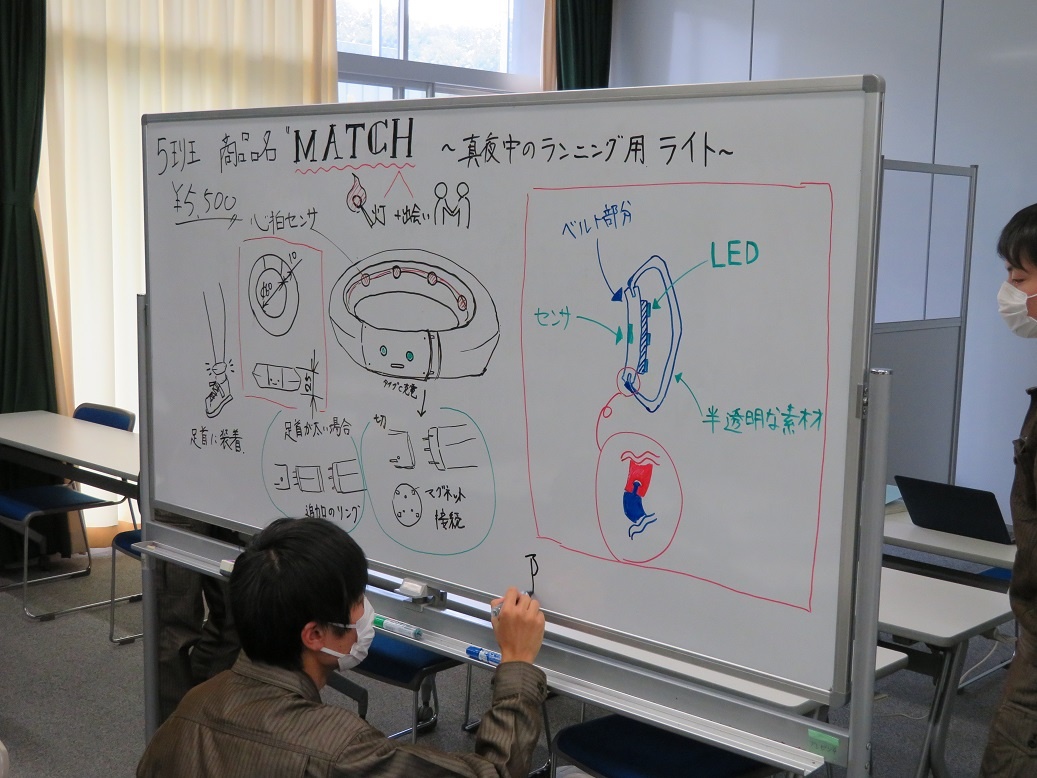 5班 商品名 "MATCH ～真夜中のランニング用 ライト～
¥5,500
灯 + 出会い
心拍センサ
10
25
足首に装着.
タイプC充電
足首が太い場合
追加のリング
切
マグネット
接続
ベルト部分
LED
センサ
半透明な素材